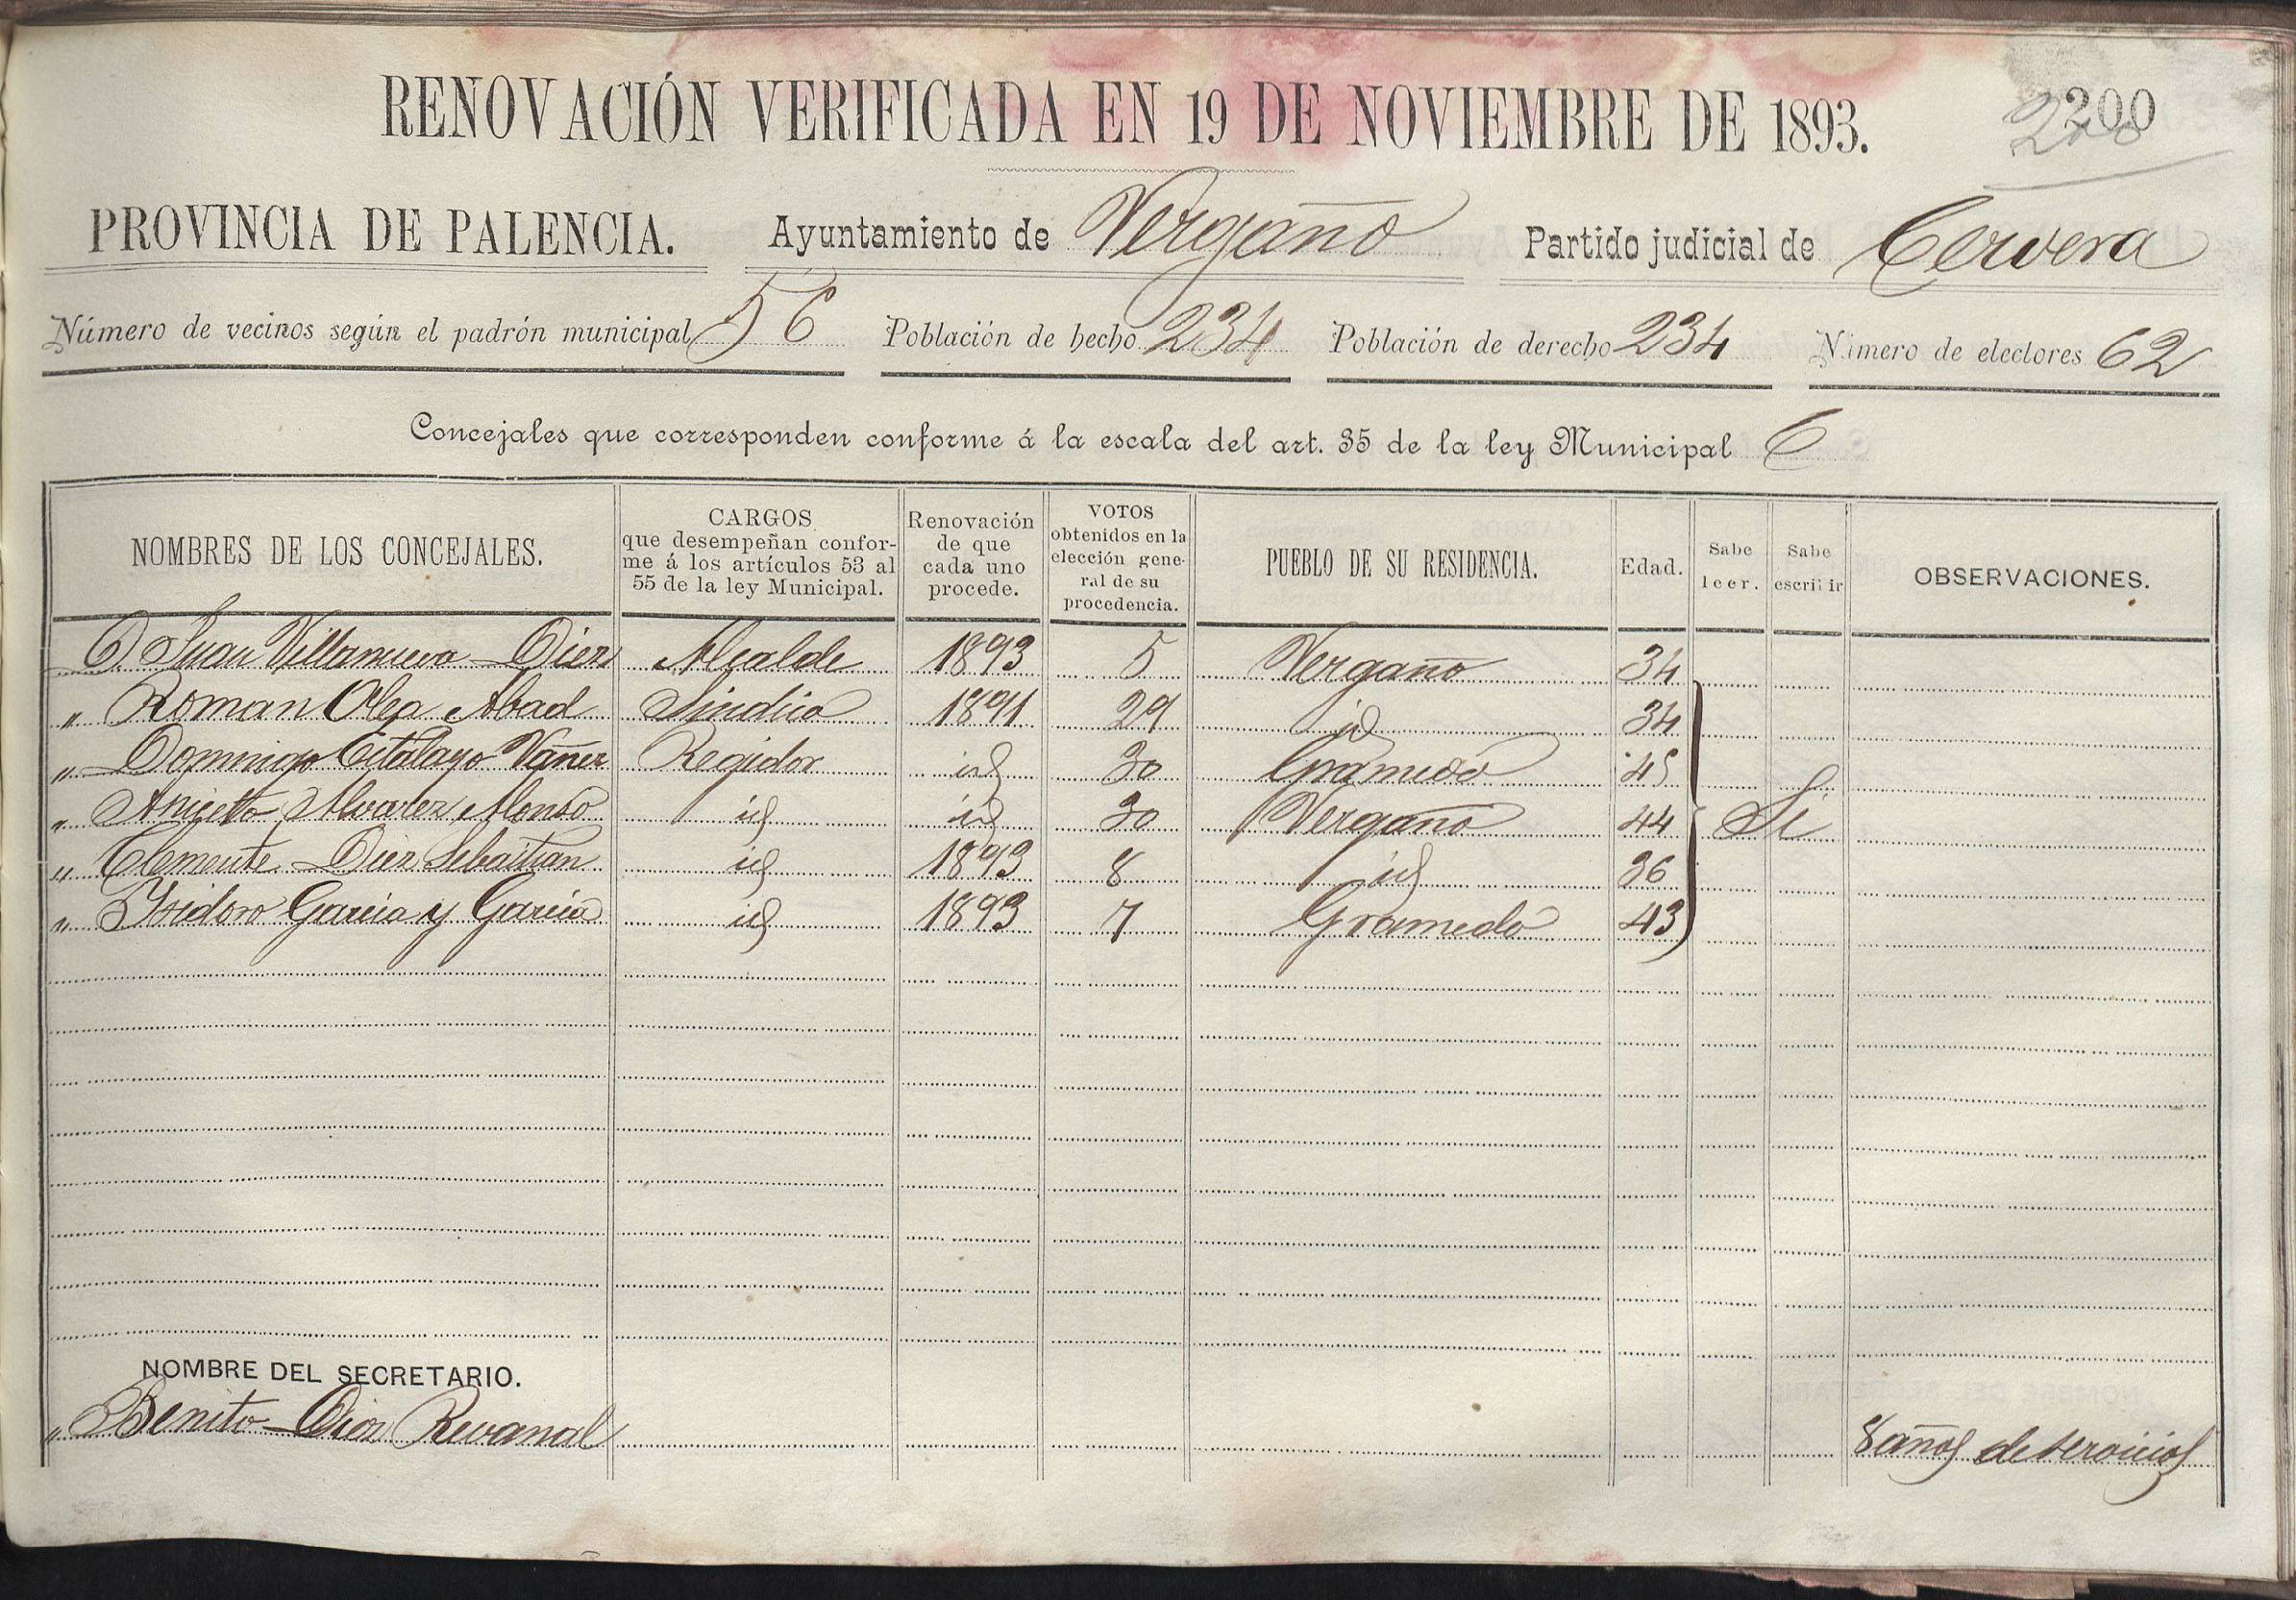 RENOVACIÓN VERIFICADA EN 19 DE NOVIEMBRE DE 1893.
200
200
PROVINCIA DE PALENCIA. Ayuntamiento de Vergaño Partido judicial de Cervera
Número de vecinos según el padrón municipal 56 Población de hecho 234 Población de derecho 234 Número de electores 62
Concejales que corresponden conforme á la escala del art. 35 de la ley Municipal 6
NOMBRES DE LOS CONCEJALES. CARGOS que desempeñan conforme á los artículos 53 al 55 de la ley Municipal. Renovación de que cada uno procede. VOTOS obtenidos en la elección general de su procedencia. PUEBLO DE SU RESIDENCIA. Edad. Sabe leer. Sabe escribir OBSERVACIONES.
D. Juan Villanueva Diez Alcalde 1893 5 Vergaño 34
" Roman Olea Abad Sindico 1891 29 id 34
" Domingo Regidor id 30 Gramedo 45
" Aniceto Alvarez Alonso id id 30 Vergaño 44 Si
" Clemente Diez Sebastian id 1893 8 id 36
" Isidoro Garcia y Garcia id 1893 7 Gramedo 43
NOMBRE DEL SECRETARIO.
" Benito Diez Revanal 8 años de servicios